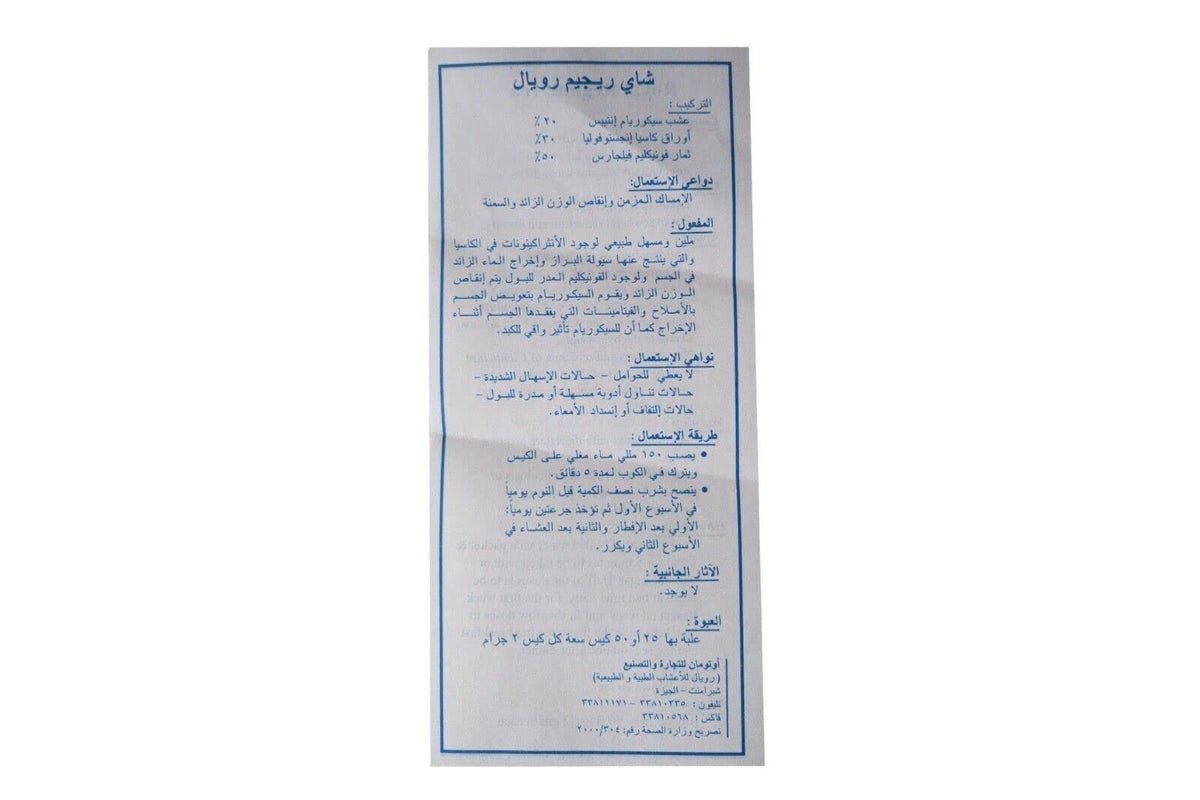 شاي ريجيم رويال
التركيب :
عشب سيكوريام إنتيبس ٢٠ ٪
أوراق كاسيا إنجستوفوليا ٣٠٪
ثمار فونيكليم فيلجارس ٥٠٪
دواعي الإستعمال:
الإمساك المزمن وإنقاص الوزن الزائد والسمنة
المفعول :
ملين ومسهل طبيعي لوجود الأنثراكينونات في الكاسيا
والتي ينتج عنها سيولة البراز وإخراج الماء الزائد
في الجسم ولوجود الفونيكليم المدر للبول يتم إنقاص
الوزن الزائد ويقوم السيكوريام بتعويض الجسم
بالأملاح والفيتامينات التي يفقدها الجسم أثناء
الإخراج كما أن للسيكوريام تأثير واقي للكبد.
نواهي الإستعمال :
لا يعطي للحوامل – حالات الإسهال الشديدة –
حالات تناول أدوية مسهلة أو مدرة للبول –
حالات إلتفاف أو إنسداد الأمعاء.
طريقة الإستعمال :
• يصب ١٥٠ مللي ماء مغلي على الكيس
ويترك في الكوب لمدة ٥ دقائق.
• ينصح بشرب نصف الكمية قبل النوم يومياً
في الأسبوع الأول ثم تؤخذ جرعتين يومياً:
الأولي بعد الإفطار والثانية بعد العشاء في
الأسبوع الثاني ويكرر.
الآثار الجانبية :
لا يوجد.
العبوة :
علبة بها ٢٥ أو ٥٠ كيس سعة كل كيس ٢ جرام
أوتومان للتجارة والتصنيع
(رويال للأعشاب الطبية و الطبيعية)
شبرامنت – الجيزة
تليفون : ٣٣٨١٠٣٣٥ – ٣٣٨١١١٧١
فاكس : ٣٣٨١٠٥٦٨
تصريح وزارة الصحة رقم: ٢٠٠٠/٣٠٤